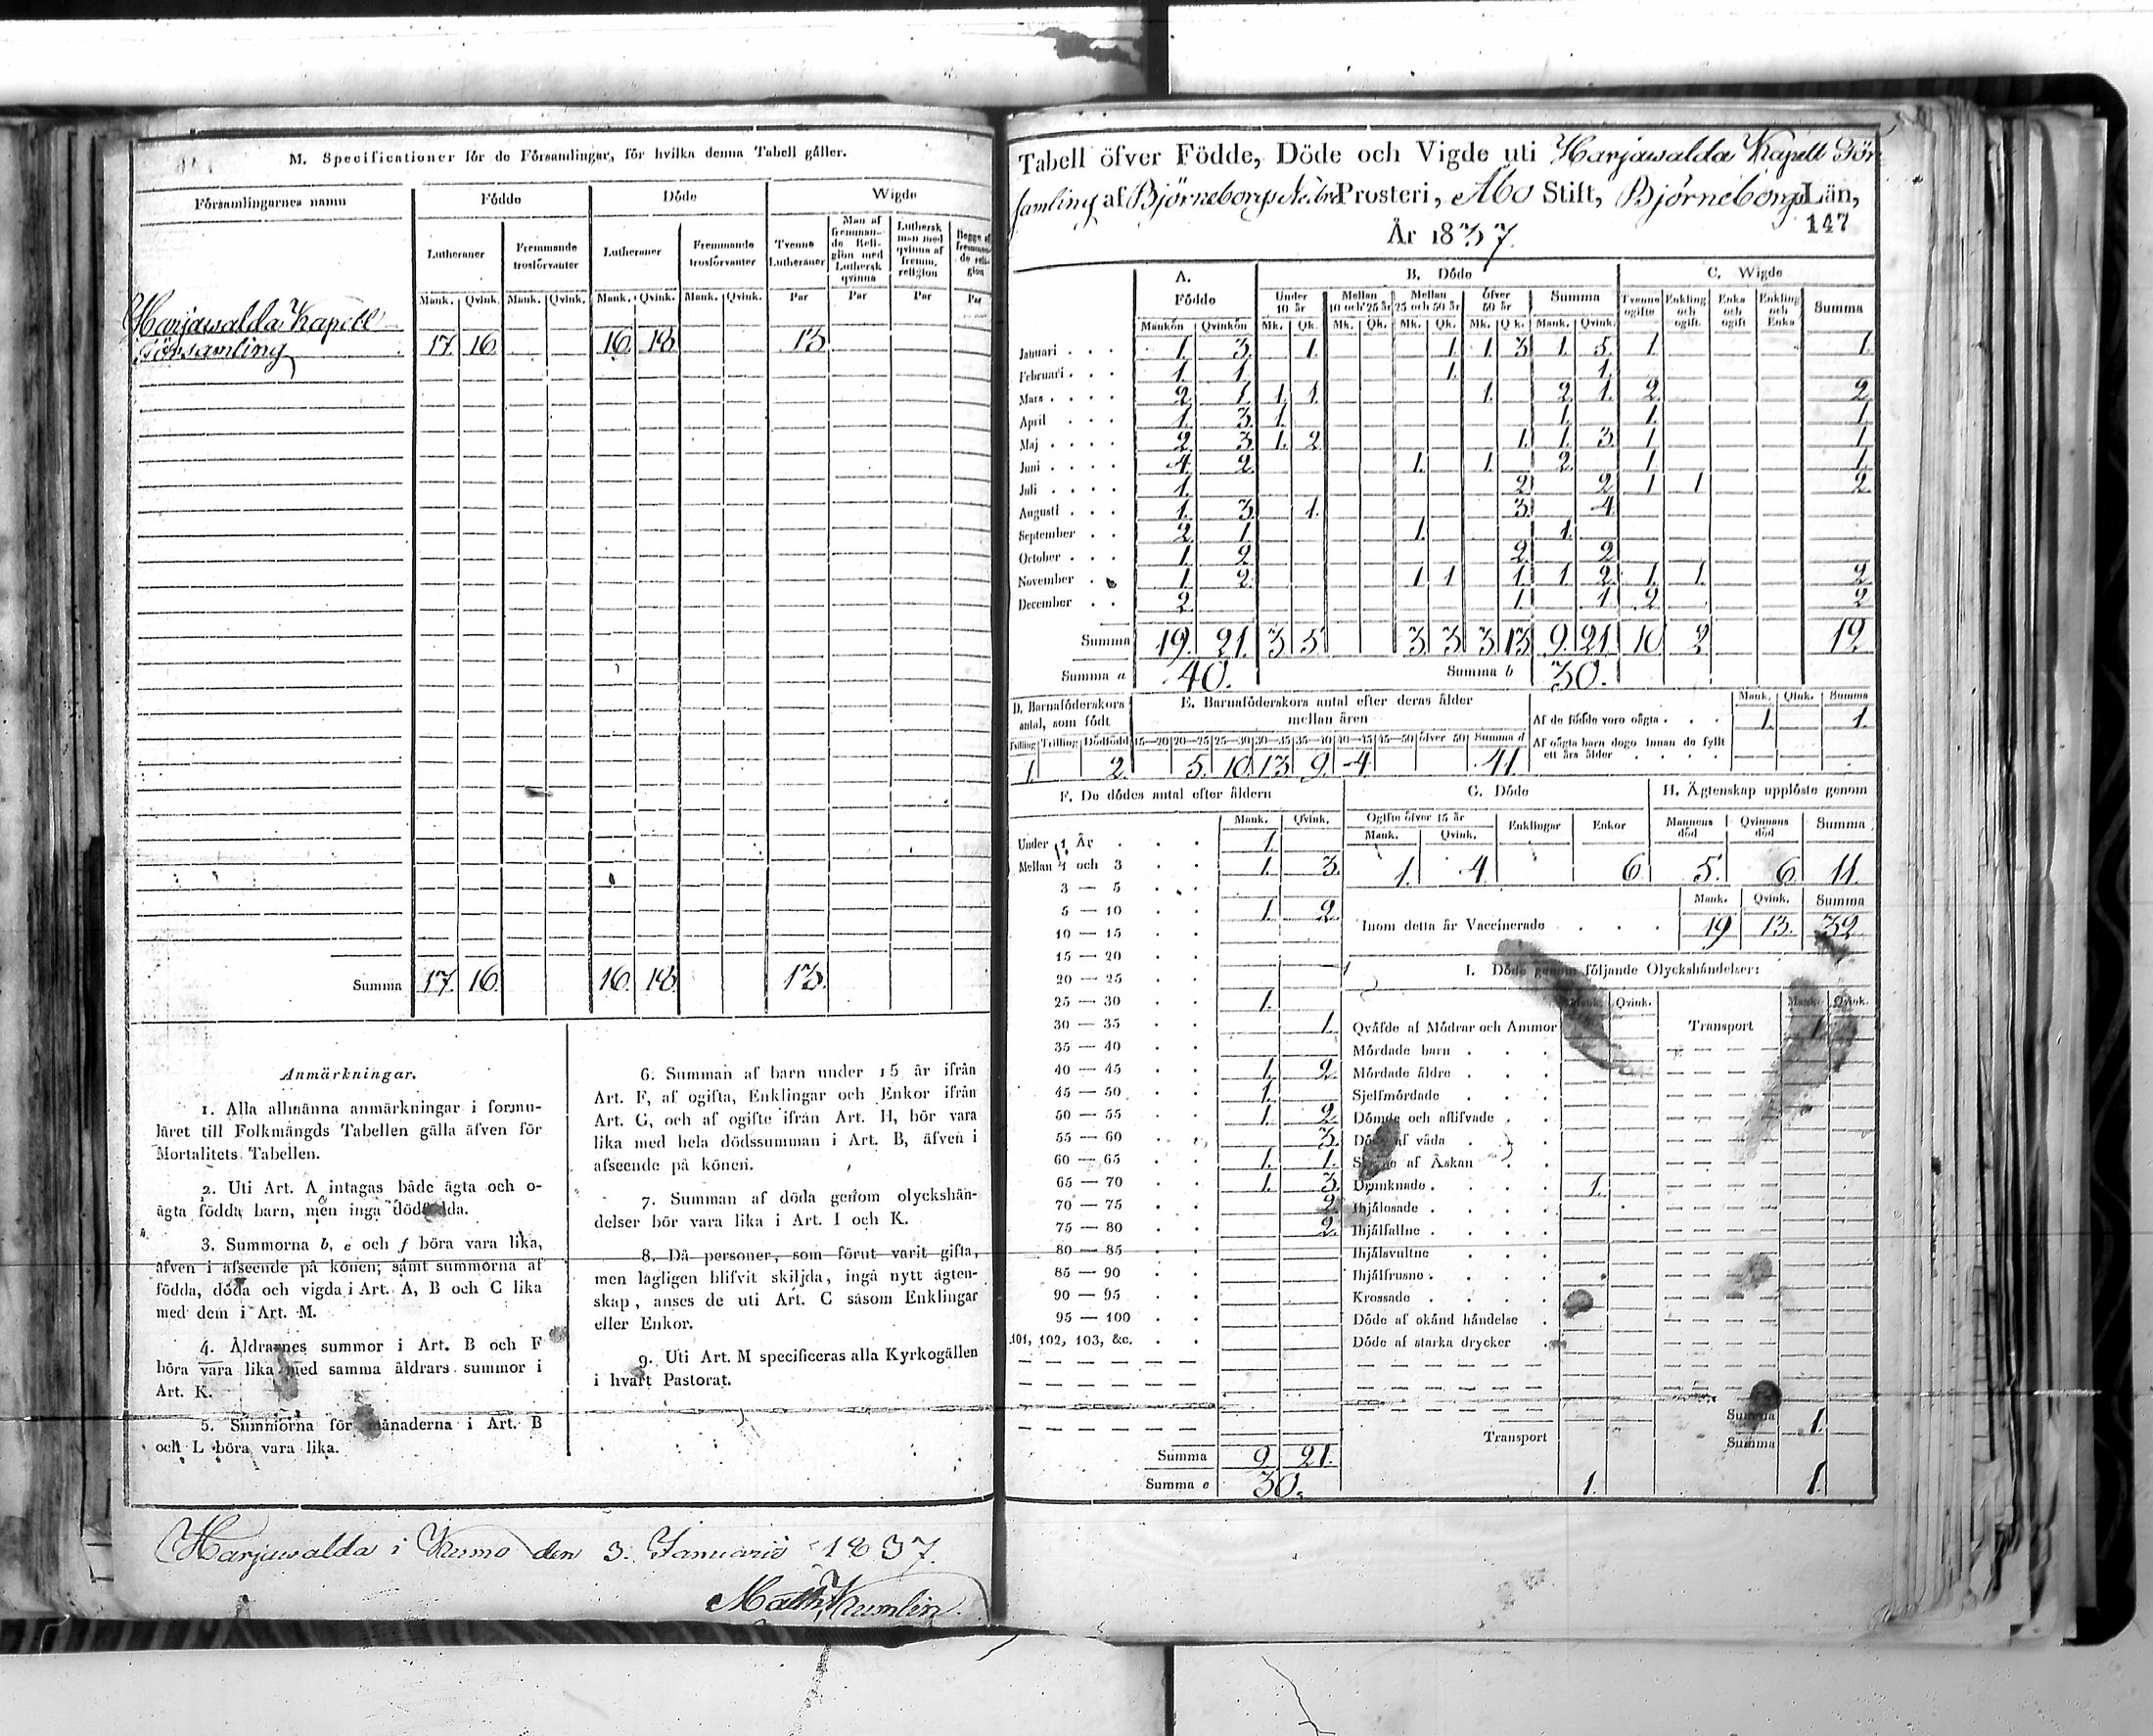 M. Specificationer för de Församlingar, för hvilka denna Tabell gäller.
Församlingarnes namn
Födde Döde Wigde
Lutheraner Fremmande trosförvanter Lutheraner Fremmande trosförvanter Tvenne Lutheraner Man af fremmande Religion med Luthersk qvinna Luthersk man med qvinna af fremm. religion Begge af fremmande religion
Mank. Qvink. Mank. Qvink. Mank. Qvink. Mank. Qvink. Par Par Par Par
Harjawalda Kapell
Församling 17 16 16 18 13
Summa 17 16 16 18 13
Anmärkningar.
1. Alla allmänna anmärkningar i formu-
läret till Folkmängds Tabellen gälla äfven för
Mortalitets Tabellen.
2. Uti Art. A intagas både ägta och o-
ägta födda barn, men inga dödfödda.
3. Summorna b, e och f böra vara lika,
äfven i afseende på könen; samt summorna af
födda, döda och vigda i Art. A, B och C lika
med dem i Art. M.
4. Åldrarnes summor i Art. B och F
böra vara lika med samma åldrars summor i
Art. K.
5. Summorna för månaderna i Art. B
och L böra vara lika.
6. Summan af barn under 15 år ifrån
Art. F, af ogifta, Enklingar och Enkor ifrån
Art. G, och af ogifte ifrån Art. H, bör vara
lika med hela dödssumman i Art. B, äfven i
afseende på könen.
7. Summan af döda genom olyckshän-
delser bör vara lika i Art. I och K.
8. Då personer, som förut varit gifta,
men lagligen blifvit skiljda, ingå nytt ägten-
skap, anses de uti Art. C såsom Enklingar
eller Enkor.
9. Uti Art. M specificeras alla Kyrkogällen
i hvart Pastorat.
Harjawalda i Kumo den 3. Januarii 1837.
Math. Kumlin.
Tabell öfver Födde, Döde och Vigde uti Harjawalda Kapell För
samling af Björneborgs Nedre Prosteri, Åbo Stift, Björneborgs Län,
År 1837.
147
A. Födde B. Döde C. Wigde
Under 10 år Mellan 10 och 25 år Mellan 25 och 50 år Öfver 50 år Summa Tvenne ogifte Enkling och ogift Enka och ogift Enkling och Enka Summa
Mankön Qvinkön Mk. Qk. Mk. Qk. Mk. Qk. Mk. Qk. Mank. Qvink.
Januari 1. 3. 1. 1. 1. 3 1. 5. 1. 1.
Februari 1. 1. 1. 1.
Mars 2. 1. 1. 1. 1. 2. 1. 2. 2.
April 1. 3. 1. 1. 1. 1.
Maj 2. 3. 1. 2. 1. 1. 3. 1. 1.
Juni 4. 2. 1. 1. 2. 1. 1.
Juli 1. 2. 2. 1 1 2.
Augusti 1. 3. 1. 3. 4.
September 2. 1. 1. 1.
October 1. 2. 2. 2.
November 1. 2. 1 1 1. 1. 2. 1. 1. 2
December 2. 1. 1 2 2
Summa 19. 21. 3 5 3 3 3 13 9. 21. 10 2 12
Summa a 40. Summa b 30.
D. Barnaföderskors antal, som födt
Tvilling Trilling Dödfödd
1 2
E. Barnaföderskors antal efter deras ålder
mellan åren
15—20 20—25 25—30 30—35 35—40 40—45 45—50 öfver 50 Summa d
5. 10. 13 9. 4. 41.
Mank. Qvink. Summa
Af de födde voro oägta 1. 1.
Af oägta barn dogo innan de fyllt
ett års ålder
F. De dödes antal efter åldern
Mank. Qvink.
Under 1 År 1.
Mellan 1 och 3 1. 3.
3 — 5
5 — 10 1. 2.
10 — 15
15 — 20
20 — 25
25 — 30 1.
30 — 35 1.
35 — 40
40 — 45 1. 2.
45 — 50 1.
50 — 55 1. 2.
55 — 60 3.
60 — 65 1. 1.
65 — 70 1. 3.
70 — 75 2
75 — 80 2.
80 — 85
85 — 90
90 — 95
95 — 100
101, 102, 103, &c.
Summa 9 21.
Summa e 30.
G. Döde
Ogifte öfver 15 år Enklingar Enkor
Mank. Qvink.
1. 4. 6.
H. Ägtenskap upplöste genom
Mannens död Qvinnans död Summa
5. 6. 11.
Mank. Qvink. Summa
Inom detta år Vaccinerade 19 13. 32
I. Döde genom följande Olyckshändelser:
Mank. Qvink. Mank. Qvink.
Qväfde af Mödrar och Ammor Transport 1.
Mördade barn
Mördade äldre
Sjelfmördade
Dömde och aflifvade
Döde af våda
Slagne af Åskan
Drunknade 1.
Ihjälosade
Ihjälfallne
Ihjälsvultne
Ihjälfrusne
Krossade
Döde af okänd händelse
Döde af starka drycker
Summa 1.
Transport 1. Summa 1.